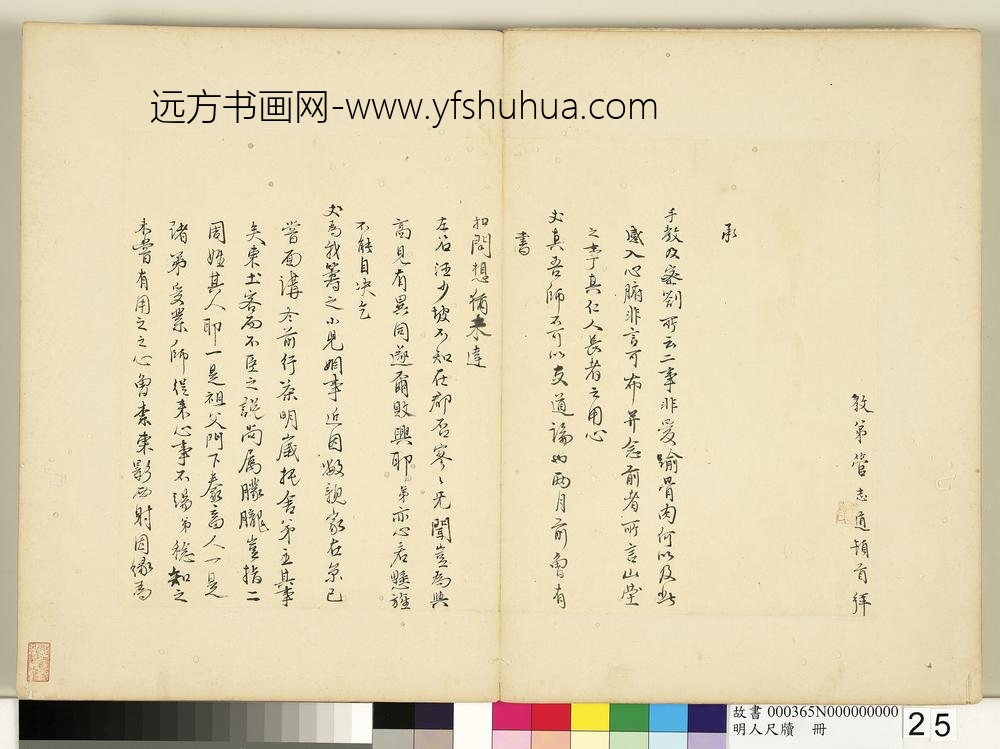 远方书画网-www.yfshuhua.com
教弟管志道頓首拜
承
手教及密劄所云二事非愛踰骨肉何以及此
感入心腑非言可布并念前者所言山堂
之李真仁人長者之用心
丈真吾師不可以友道論也兩月前曾有
書
扣問想猶未達
左右汪少坡不知在郡否寥寥無聞豈為與
高見有異同遂爾敗興耶弟亦心若懸旌
不能自决乞
丈為我籌之小兒姻事近因敝親家在京已
嘗面講冬前行茶明歲托舍弟主其事
矣東土客而不臣之說尚屬朦朧豈指二
周姓其人耶一是祖父門下養高人一是
諸弟受業師從來心事不湯弟稔知之
未嘗有用之之心曾柰東影西射因緣為
故書 000365N000000000
明人尺牘 冊
25